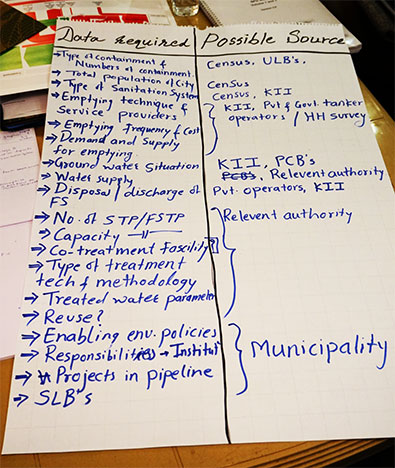 Data Required
Possible Source
→ Type of containment &
Numbers of containment.
Census, ULB's.
→ Total population of City
Census
→ Type of Sanitation System
Census, KII
→ Emptying technique &
Service providers
KII, Pvt & Govt. tanker
operators / HH survey
→ Emptying frequency & Cost
→ Demand and Supply
for emptying
→ Ground water Situation
KII, PCB's
→ Water supply
PCB's, Relevent authority
→ Disposal / discharge of
FS
Pvt. operators, KII
→ No. of STP/FSTP
Relevent authority
→ Capacity —||—
→ Co-treatment fascility?
→ Type of treatment
tech & methodology
→ Treated water parameter
→ Reuse?
→ Enabling env. policies
→ Responsibilities → Institut
Municipality
→ Projects in pipeline
→ SLB's